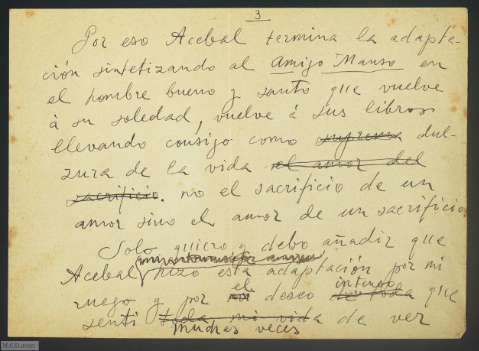 3
Por eso Acebal termina la adapta-
ción sintetizando al Amigo Manso en
el hombre bueno y santo que vuelve
á su soledad, vuelve á sus libros
llevando consigo como suprema dul-
zura de la vida el amor del
sacrificio. no el sacrificio de un
amor sino el amor de un sacrificio
Solo quiero y debo añadir que
Acebal hizo esta adaptación por mi
ruego y por el deseo intenso que
sentí toda mi vida de ver
muchas veces